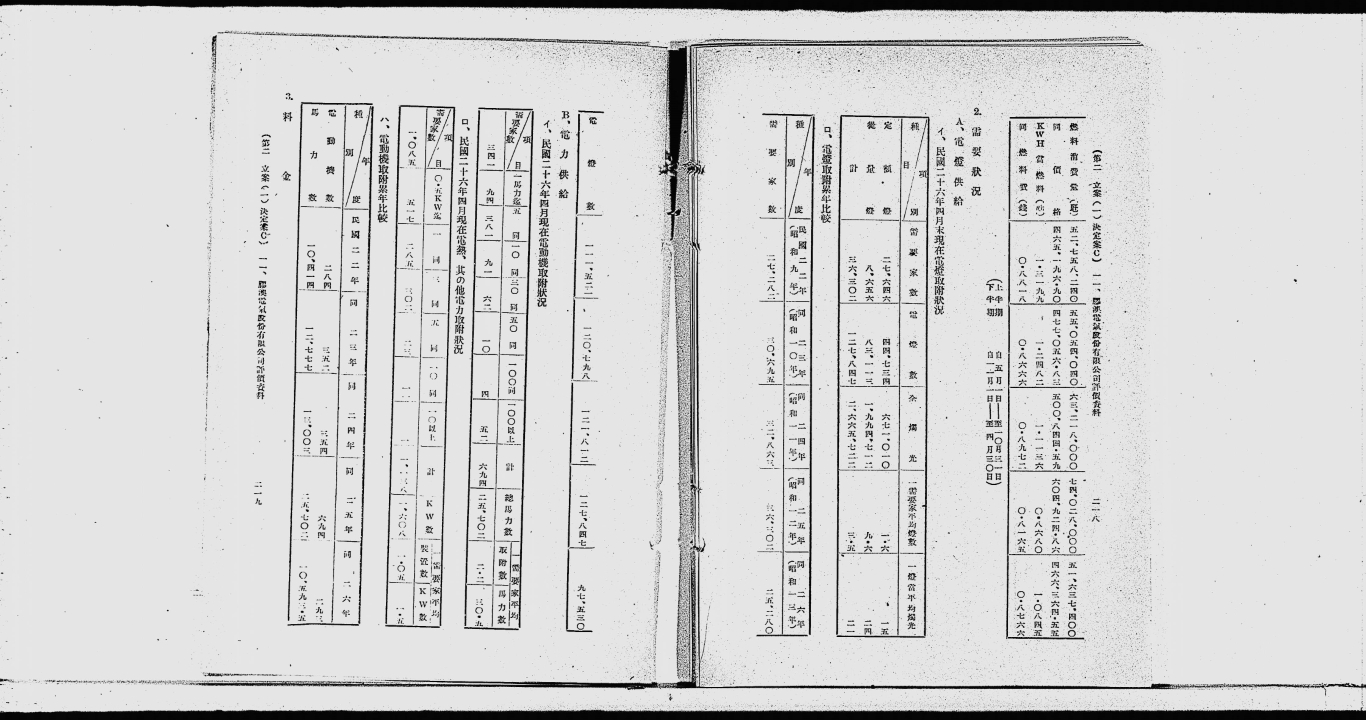 (第二 立案(一)決定案C) 一一、膠澳電氣股份有限公司評價資料
二一八
燃料消費量(瓲) 五二、七五八、二四〇 五五、〇五四、〇四〇 六三、二一八、〇〇〇 七四、〇二八、〇〇〇 五一、六三七、四〇〇
同 價 格 四六五、一九六・九〇 四七七、〇五六・八三 五〇〇、八四四・五九 六〇四、九二四・八六 四六六、三六四・五五
KWH當燃料(瓩) 一・三一九九 一・二四八二 一・一一三六 〇・八六八〇 一・〇八四五
同 燃 料 費(錢) 〇・八一一八 〇・八六六六 〇・八九七二 〇・八一六五 〇・八七六六
(上半期 自 五月一日――至一〇月三一日
下半期 自一一月一日――至 四月三〇日)
2. 需要狀況
A、電燈供給
イ、民國二十六年四月末現在電燈取附狀況
種目 項別 需要家數 電燈數 全燭光 一需要家平均燈數 一燈當平均燭光
定額燈 二七、六四六 四四、七三四 六七一、〇一〇 一・六 一五
從量燈 八、六五六 八三、一一三 一、九九四、七一二 九・六 二四
計 三六、三〇二 一二七、八四七 二、六六五、七二二 三・五 二一
ロ、電燈取附累年比較
種別 年度 民國二二年(昭和九年) 同二三年(昭和一〇年) 同二四年(昭和一一年) 同二五年(昭和一二年) 同二六年(昭和一三年)
需要家數 二七、二八二 三〇、六九五 三二、八六三 三六、三〇二 二五、二八〇
電燈數 一一一、五二一 一二〇、七九八 一二一、八一二 一二七、八四七 九七、五三〇
B、電力供給
イ、民國二十六年四月現在電動機取附狀況
需要家數 項目 一馬力迄 五同 一〇同 三〇同 五〇同 一〇〇同 一〇〇以上 計 總馬力數 一需要家平均 取附數 馬力數
三四一 九四 三八一 九一 六二 一〇 四 五二 六九四 二五、七〇二 二・二 三〇・五
ロ、民國二十六年四月現在電熱、其の他電力取附狀況
需要家數 項目 〇・五KW迄 一同 三同 五同 一〇同 一〇以上 計 KW數 一需要家平均 裝置數 KW數
一、〇八五 五一七 二八五 三〇二 二三 一一 一、六〇八 一・〇五 一・五
ハ、電動機取附累年比較
種別 年度 民國二二年 同二三年 同二四年 同二五年 同二六年
電動機數 二八四 三五二 三五四 六九四 二九三
馬力數 一〇、四一四 一二、七七七 一三、〇〇三 二五、七〇二 一〇、五九三・五
3. 料金
(第二 立案(一)決定案C) 一一、膠澳電氣股份有限公司評價資料
二一九